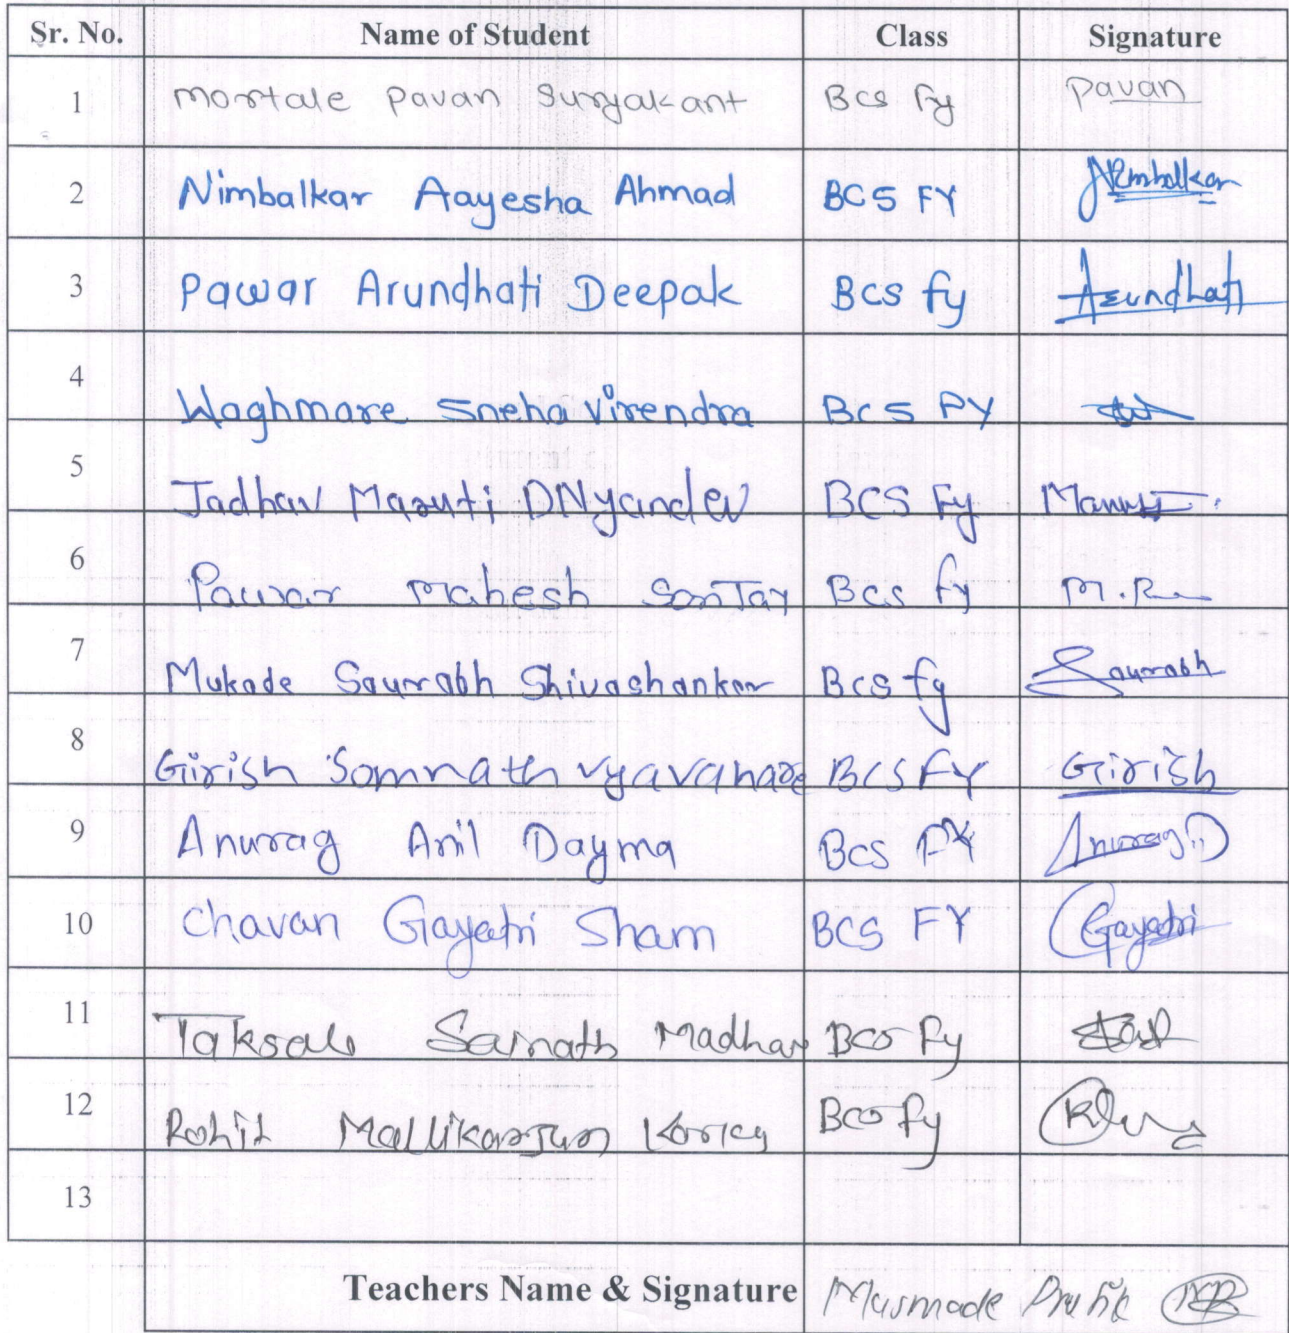 Sr. No. Name of Student Class Signature
1 mortale pavan suryakant Bcs Fy pavan
2 Nimbalkar Aayesha Ahmad BCS FY Nimbalkar
3 Pawar Arundhati Deepak BCS fy Arundhati
4 Waghmare Sneha Virendra BCS FY
5 Jadhav Maruti DNyandev BCS Fy Maruti
6 Pawar Mahesh BCS fy
7 Mukade Saurabh Shivashankar BCS fy Saurabh
8 Girish Somnath vyavahare BCS FY Girish
9 Anurag Anil Dayma BCS FY Anurag D
10 Chavan Gayatri Sham BCS FY Gayatri
11 Taksale Sainath Madhav BCS Fy
12 Rohit Mallikarjun BCS fy
13
Teachers Name & Signature